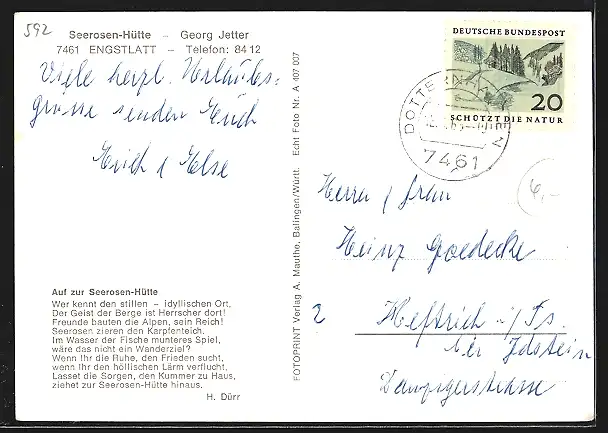 592
Seerosen-Hütte – Georg Jetter
7461 ENGSTLATT – Telefon: 84 12
Viele herzl. Urlaubs=
grüsse senden Euch
Erich & Else
Auf zur Seerosen-Hütte
Wer kennt den stillen – idyllischen Ort,
Der Geist der Berge ist Herrscher dort!
Freunde bauten die Alpen, sein Reich!
Seerosen zieren den Karpfenteich.
Im Wasser der Fische munteres Spiel,
wäre das nicht ein Wanderziel?
Wenn Ihr die Ruhe, den Frieden sucht,
wenn Ihr den höllischen Lärm verflucht,
Lasset die Sorgen, den Kummer zu Haus,
ziehet zur Seerosen-Hütte hinaus.
H. Dürr
FOTOPRINT Verlag A. Mauthe, Balingen/Württ. Echt Foto Nr. A 407 007
DEUTSCHE BUNDESPOST
20
SCHÜTZT DIE NATUR
DOTTERNHAUSEN
7461
6,-
Herrn / Frau
Heinz Goedecke
2
Heftrich i/Ts.
bei Idstein
Danzigerstrasse